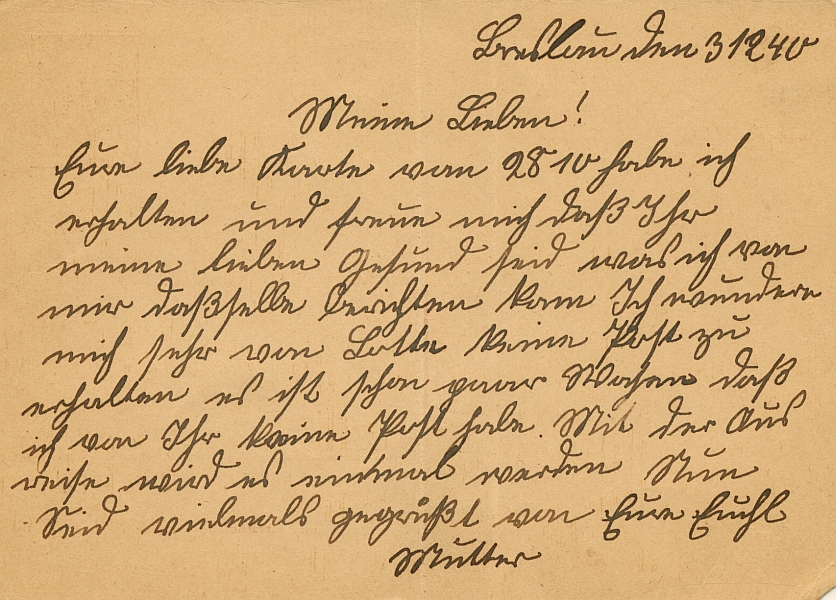 Breslau den 3 12 40
Meine Lieben!
Eure liebe Karte von 28 10 habe ich
erhalten und freue mich daß Ihr
meine lieben Gesund seid was ich von
mir daßselbe berichten kann Ich wundere
mich sehr von Lotte keine Post zu
erhalten es ist schon paar Wochen daß
ich von Ihr keine Post habe. Mit der Aus
reise wird es einmal werden Nun
Seid vielmals gegrüßt von Eure Euch
Mutter